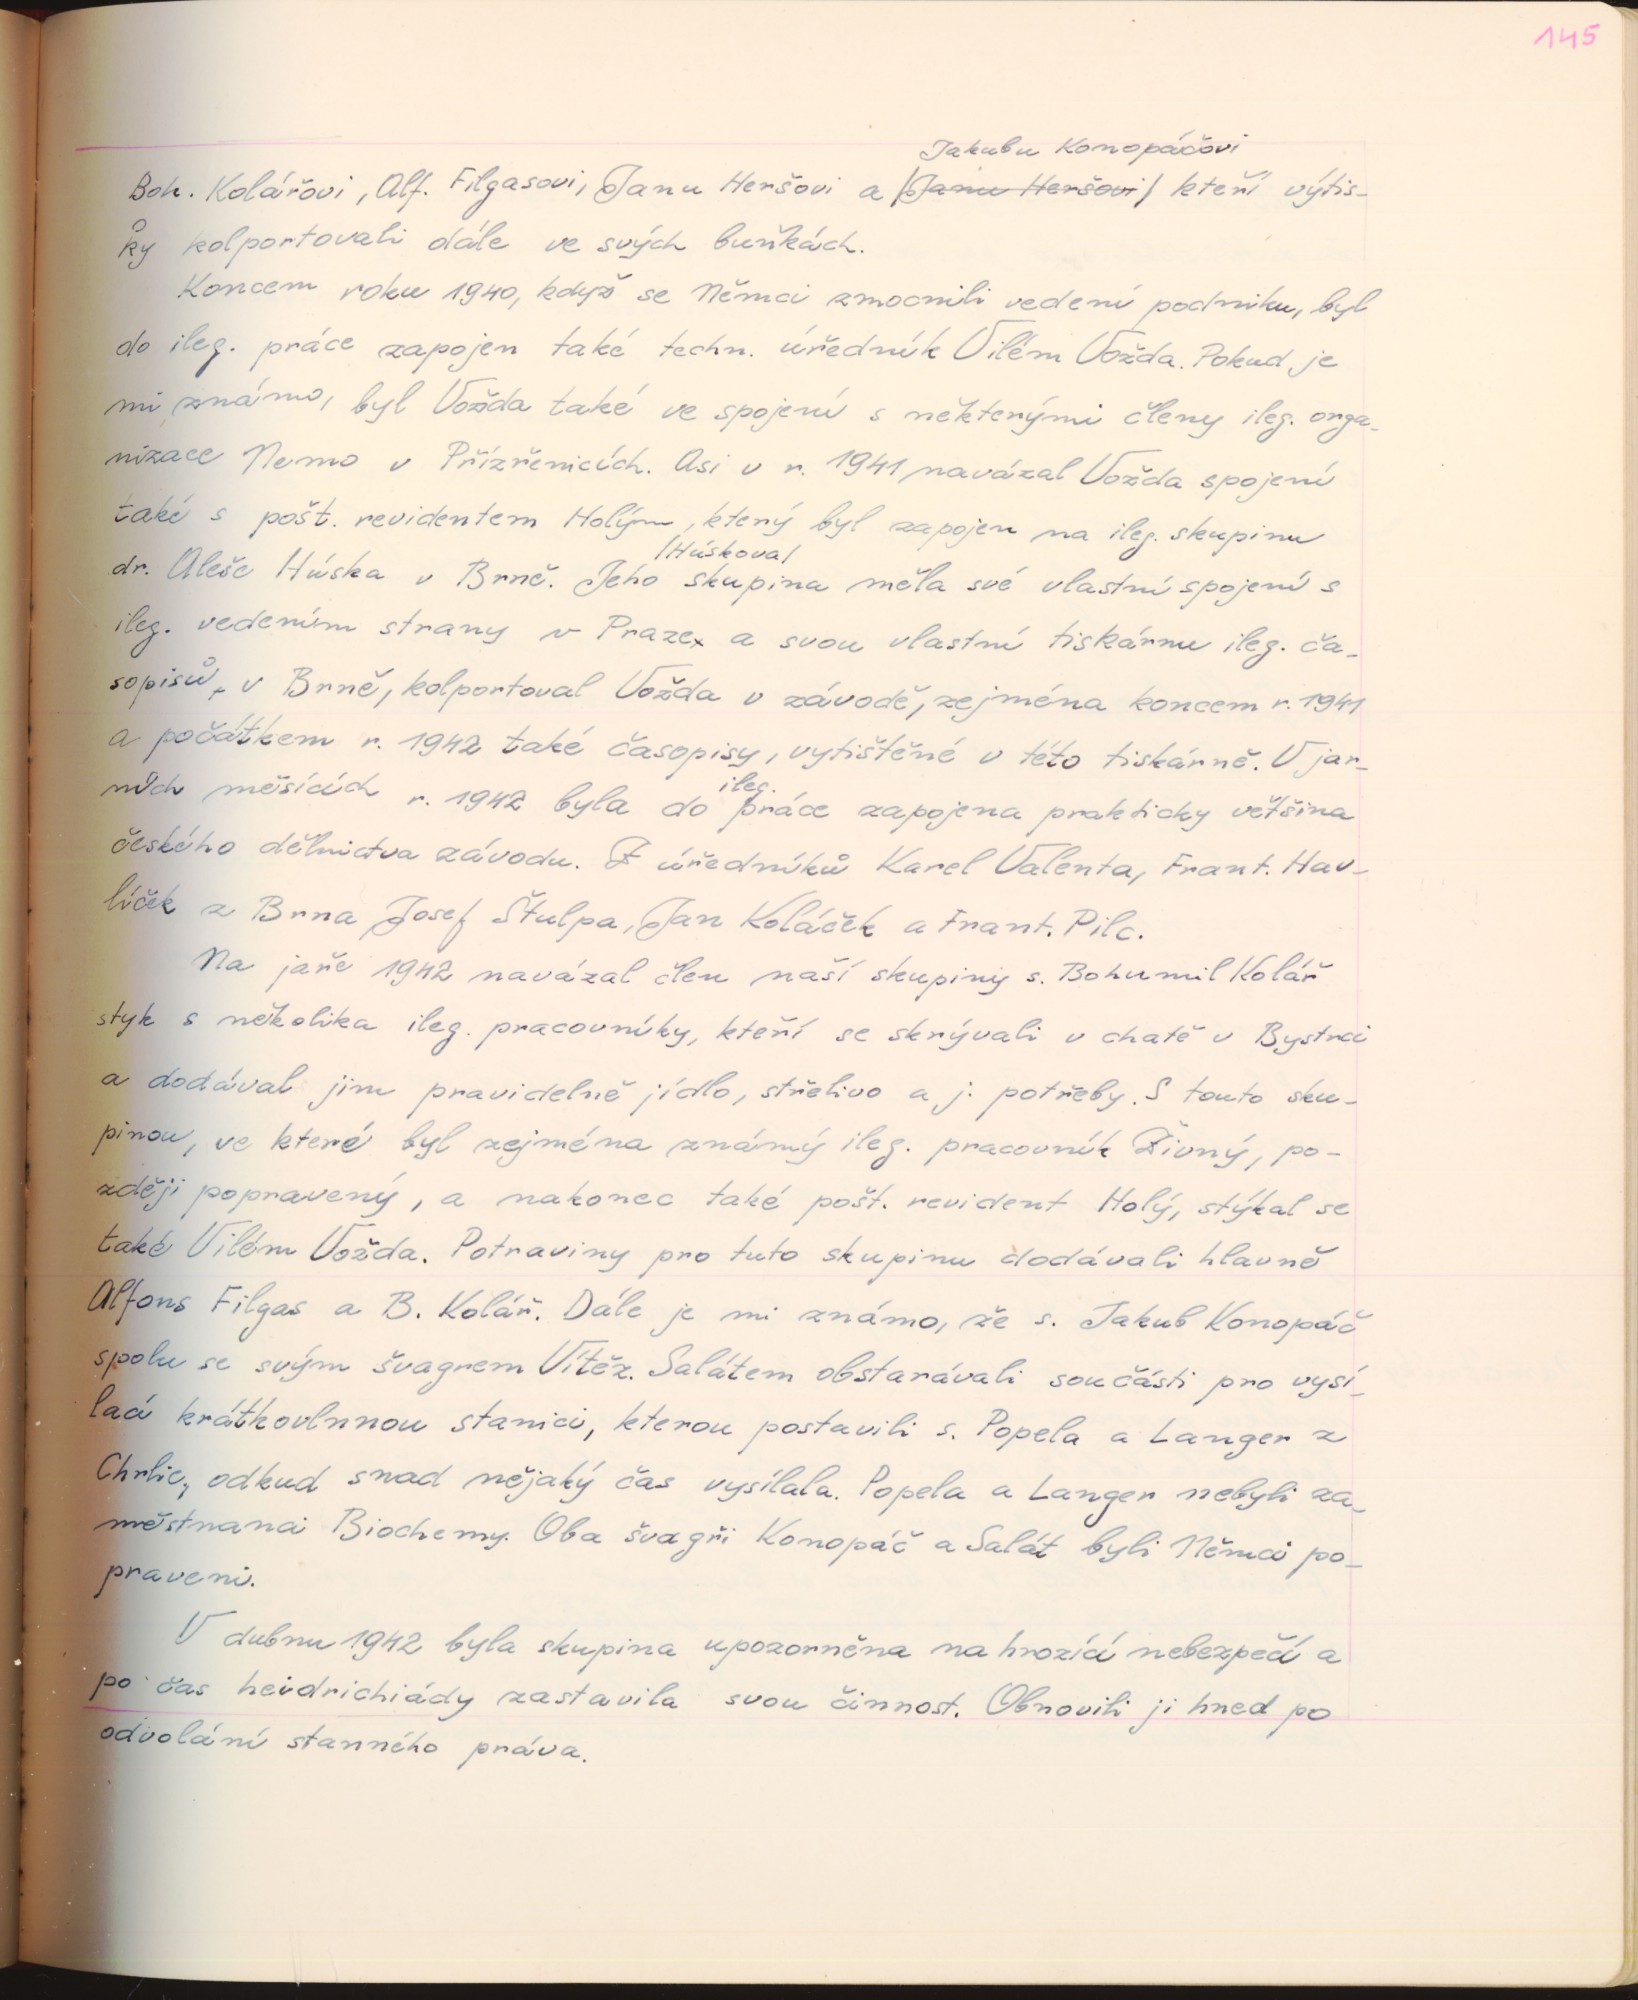 145
Jakubu Konopáčovi
Boh. Kolářovi, Alf. Filgasovi, Janu Heršovi a /Janu Heršovi/ kteří výtis-
ky kolportovali dále ve svých buňkách.
Koncem roku 1940, když se Němci zmocnili vedení podniku, byl
do ileg. práce zapojen také techn. úředník Vilém Vožda. Pokud je
mi známo, byl Vožda také ve spojení s některými členy ileg. orga-
nizace Nemo v Přízřenicích. Asi v r. 1941 navázal Vožda spojení
také s pošt. revidentem Holým, který byl zapojen na ileg. skupinu
/Húskova/
dr. Aleše Húska v Brně. Jeho skupina měla své vlastní spojení s
ileg. vedením strany v Praze, a svou vlastní tiskárnu ileg. ča-
sopisů, v Brně, kolportoval Vožda v závodě, zejména koncem r. 1941
a počátkem r. 1942 také časopisy, vytištěné v této tiskárně. V jar-
ileg.
ních měsících r. 1942 byla do práce zapojena prakticky většina
českého dělnictva závodu. Z úředníků Karel Valenta, Frant. Hav-
líček z Brna Josef Štulpa, Jan Koláček a Frant. Pilc.
Na jaře 1942 navázal člen naší skupiny s. Bohumil Kolář
styk s několika ileg. pracovníky, kteří se skrývali v chatě v Bystrci
a dodával jim pravidelně jídlo, střelivo a j. potřeby. S touto sku-
pinou, ve které byl zejména známý ileg. pracovník Živný, po-
zději popravený, a nakonec také pošt. revident Holý, stýkal se
také Vilém Vožda. Potraviny pro tuto skupinu dodávali hlavně
Alfons Filgas a B. Kolář. Dále je mi známo, že s. Jakub Konopáč
spolu se svým švagrem Vítěz. Salátem obstarávali součásti pro vysí-
lací krátkovlnnou stanici, kterou postavili s. Popela a Langer z
Chrlic, odkud snad nějaký čas vysílala. Popela a Langer nebyli za-
městnanci Biochemy. Oba švagři Konopáč a Salát byli Němci po-
praveni.
V dubnu 1942 byla skupina upozorněna na hrozící nebezpečí a
po čas heidrichiády zastavila svou činnost. Obnovili ji hned po
odvolání stanného práva.